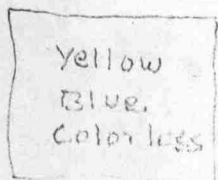 Yellow
Blue.
Colorless